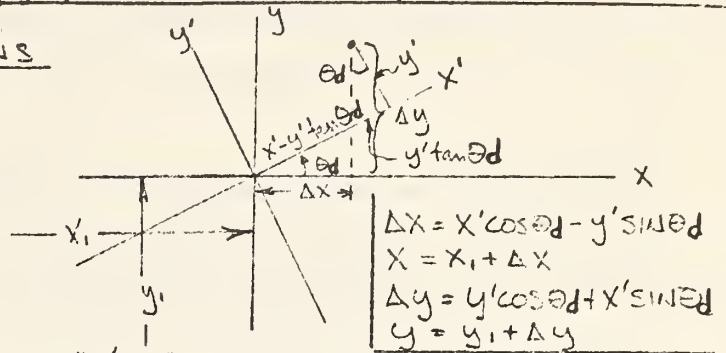 NS
y'
y
θd
y'
x'
x'-y'tanθd
Δy
θd
y'tanθd
Δx
x
x₁
y₁
Δx = x'cosθd - y'sinθd
x = x₁ + Δx
Δy = y'cosθd + x'sinθd
y = y₁ + Δy